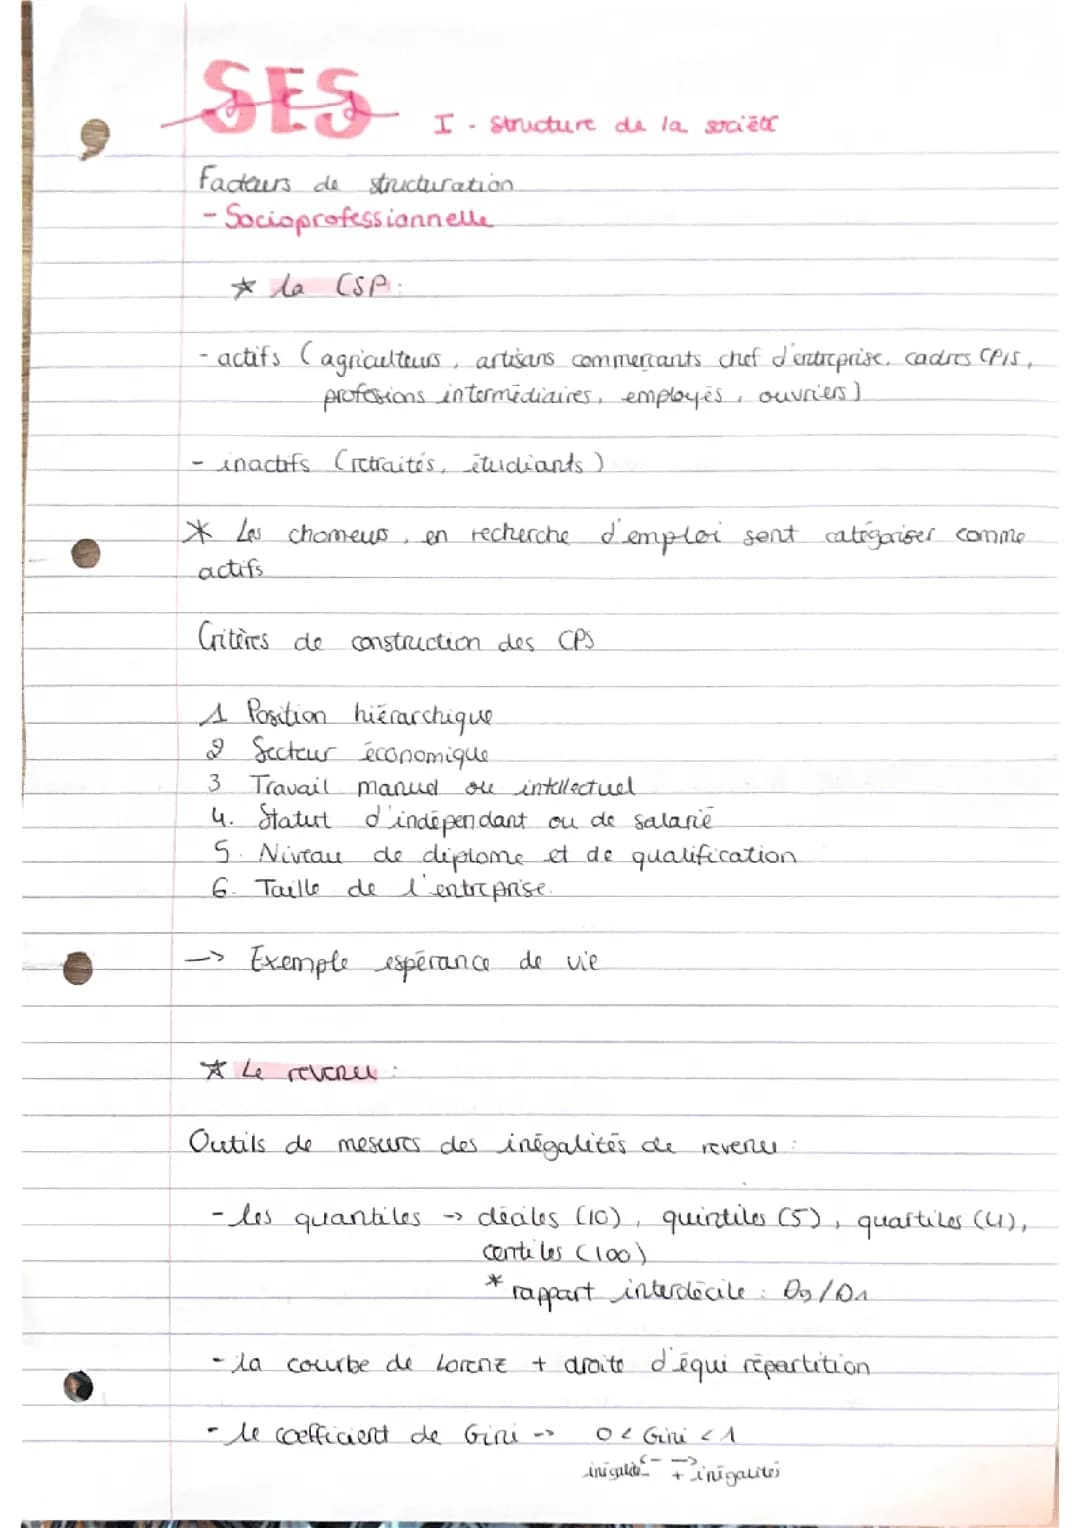 SES
I - structure de la société
Facteurs de structuration
- Socioprofessionnelle
* la CSP :
- actifs (agriculteurs, artisans commerçants chef d'entreprise, cadres CPIS,
professions intermédiaires, employés, ouvriers)
- inactifs (retraités, étudiants)
* Les chomeurs, en recherche d'emploi sont catégoriser comme
actifs
Critères de construction des CPS
1 Position hiérarchique
2 Secteur économique
3 Travail manuel ou intellectuel
4. Statut d'indépendant ou de salarié
5. Niveau de diplome et de qualification
6. Taille de l'entreprise.
-> Exemple espérance de vie
* Le revenu :
Outils de mesures des inégalités de revenu :
- les quantiles -> déciles (10), quintiles (5), quartiles (4),
centiles (100)
* rapport interdécile : D9/D1
- la courbe de Lorenz + droite d'équi répartition
- le coefficient de Gini -> 0 < Gini < 1
inégalité - <- -> + inégalités